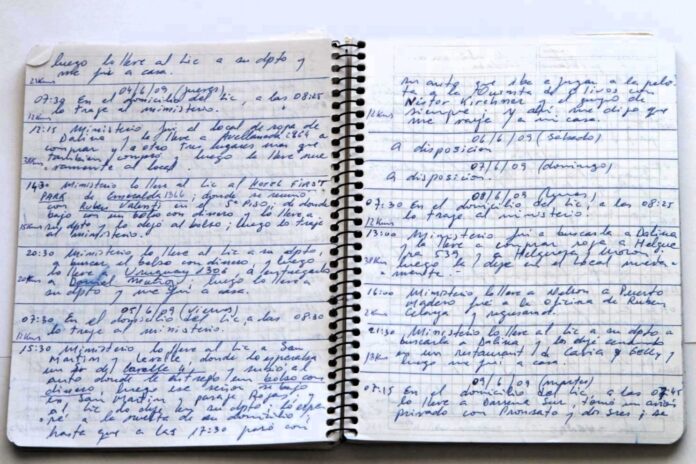 luego lo lleve al Lic a su dpto y
me fui a casa.
21Kms
04/6/09 (jueves)
07:30 En el domicilio del Lic, a las 08:25
lo traje al ministerio.
12Kms
12:15 Ministerio fui al local de ropa de
Dalina y la lleve a Avellaneda
comprar y a otro tres lugares mas que
tambien compró luego la lleve nue
vamente al local.
1430 Ministerio lo lleve al Lic al HOTEL FIRST
PARK de Esmeralda 1366, donde se reunio
con Ruben Valenti en el 5º PISO, de donde
bajo con un bolso con dinero y lo lleve a
su dpto y lo dejó al bolso; luego lo traje
al ministerio.
20:30 Ministerio lo lleve al Lic a su dpto
a buscar el bolso con dinero y luego
lo lleve a Uruguay 1306 a entregarselo
a Daniel Muñoz luego lo lleve a
su dpto y me fui a casa.
05/6/09 (viernes)
07:30 En el domicilio del Lic, a las 08:30
12Kms
lo traje al ministerio.
15:30 Ministerio lo lleve al Lic a San
Martin y Lavalle, donde lo esperaba
un Sr del y subió al
auto donde le entregó un bolso con
dinero luego ese señor se bajo
en San Martin y pasaje Rojas y
al Lic lo deje en su dpto, lo espe
ré a la vuelta de su domicilio
hasta que a las 17:30 paró con
su auto que iba a jugar a la pelo
ta a la Quinta de Olivos con
Néstor Kirchner el grupo de
siempre y a mi me dijo que
me fui a mi casa.
06/6/09 (sabado)
A disposicion
07/6/09 (domingo)
A disposicion
08/6/09 (lunes)
07:30 En el domicilio del Lic, a las 08:25
lo traje al ministerio.
12Kms
13:00 Ministerio fui a buscarla a Dalina
y la lleve a comprar ropa a Helgue
ra 539, a Helguera y Moron y
luego la deje en el local nueva-
mente.
16:00 Ministerio, lo lleve a Nelson a Puerto
Madero fui a la oficina de Ruben
y regresamos.
21:30 Ministerio lo lleve al Lic a su dpto a
buscarla a Dalina y los dejé cenando
en un restaurant de Cavia y Gelly y
luego me fui a casa.
09/6/09 (martes)
08:15 En el domicilio del Lic, a las 08:45
lo lleve a Barrena Sur, tomó un avión
privado con Pronsato y dos sres; se